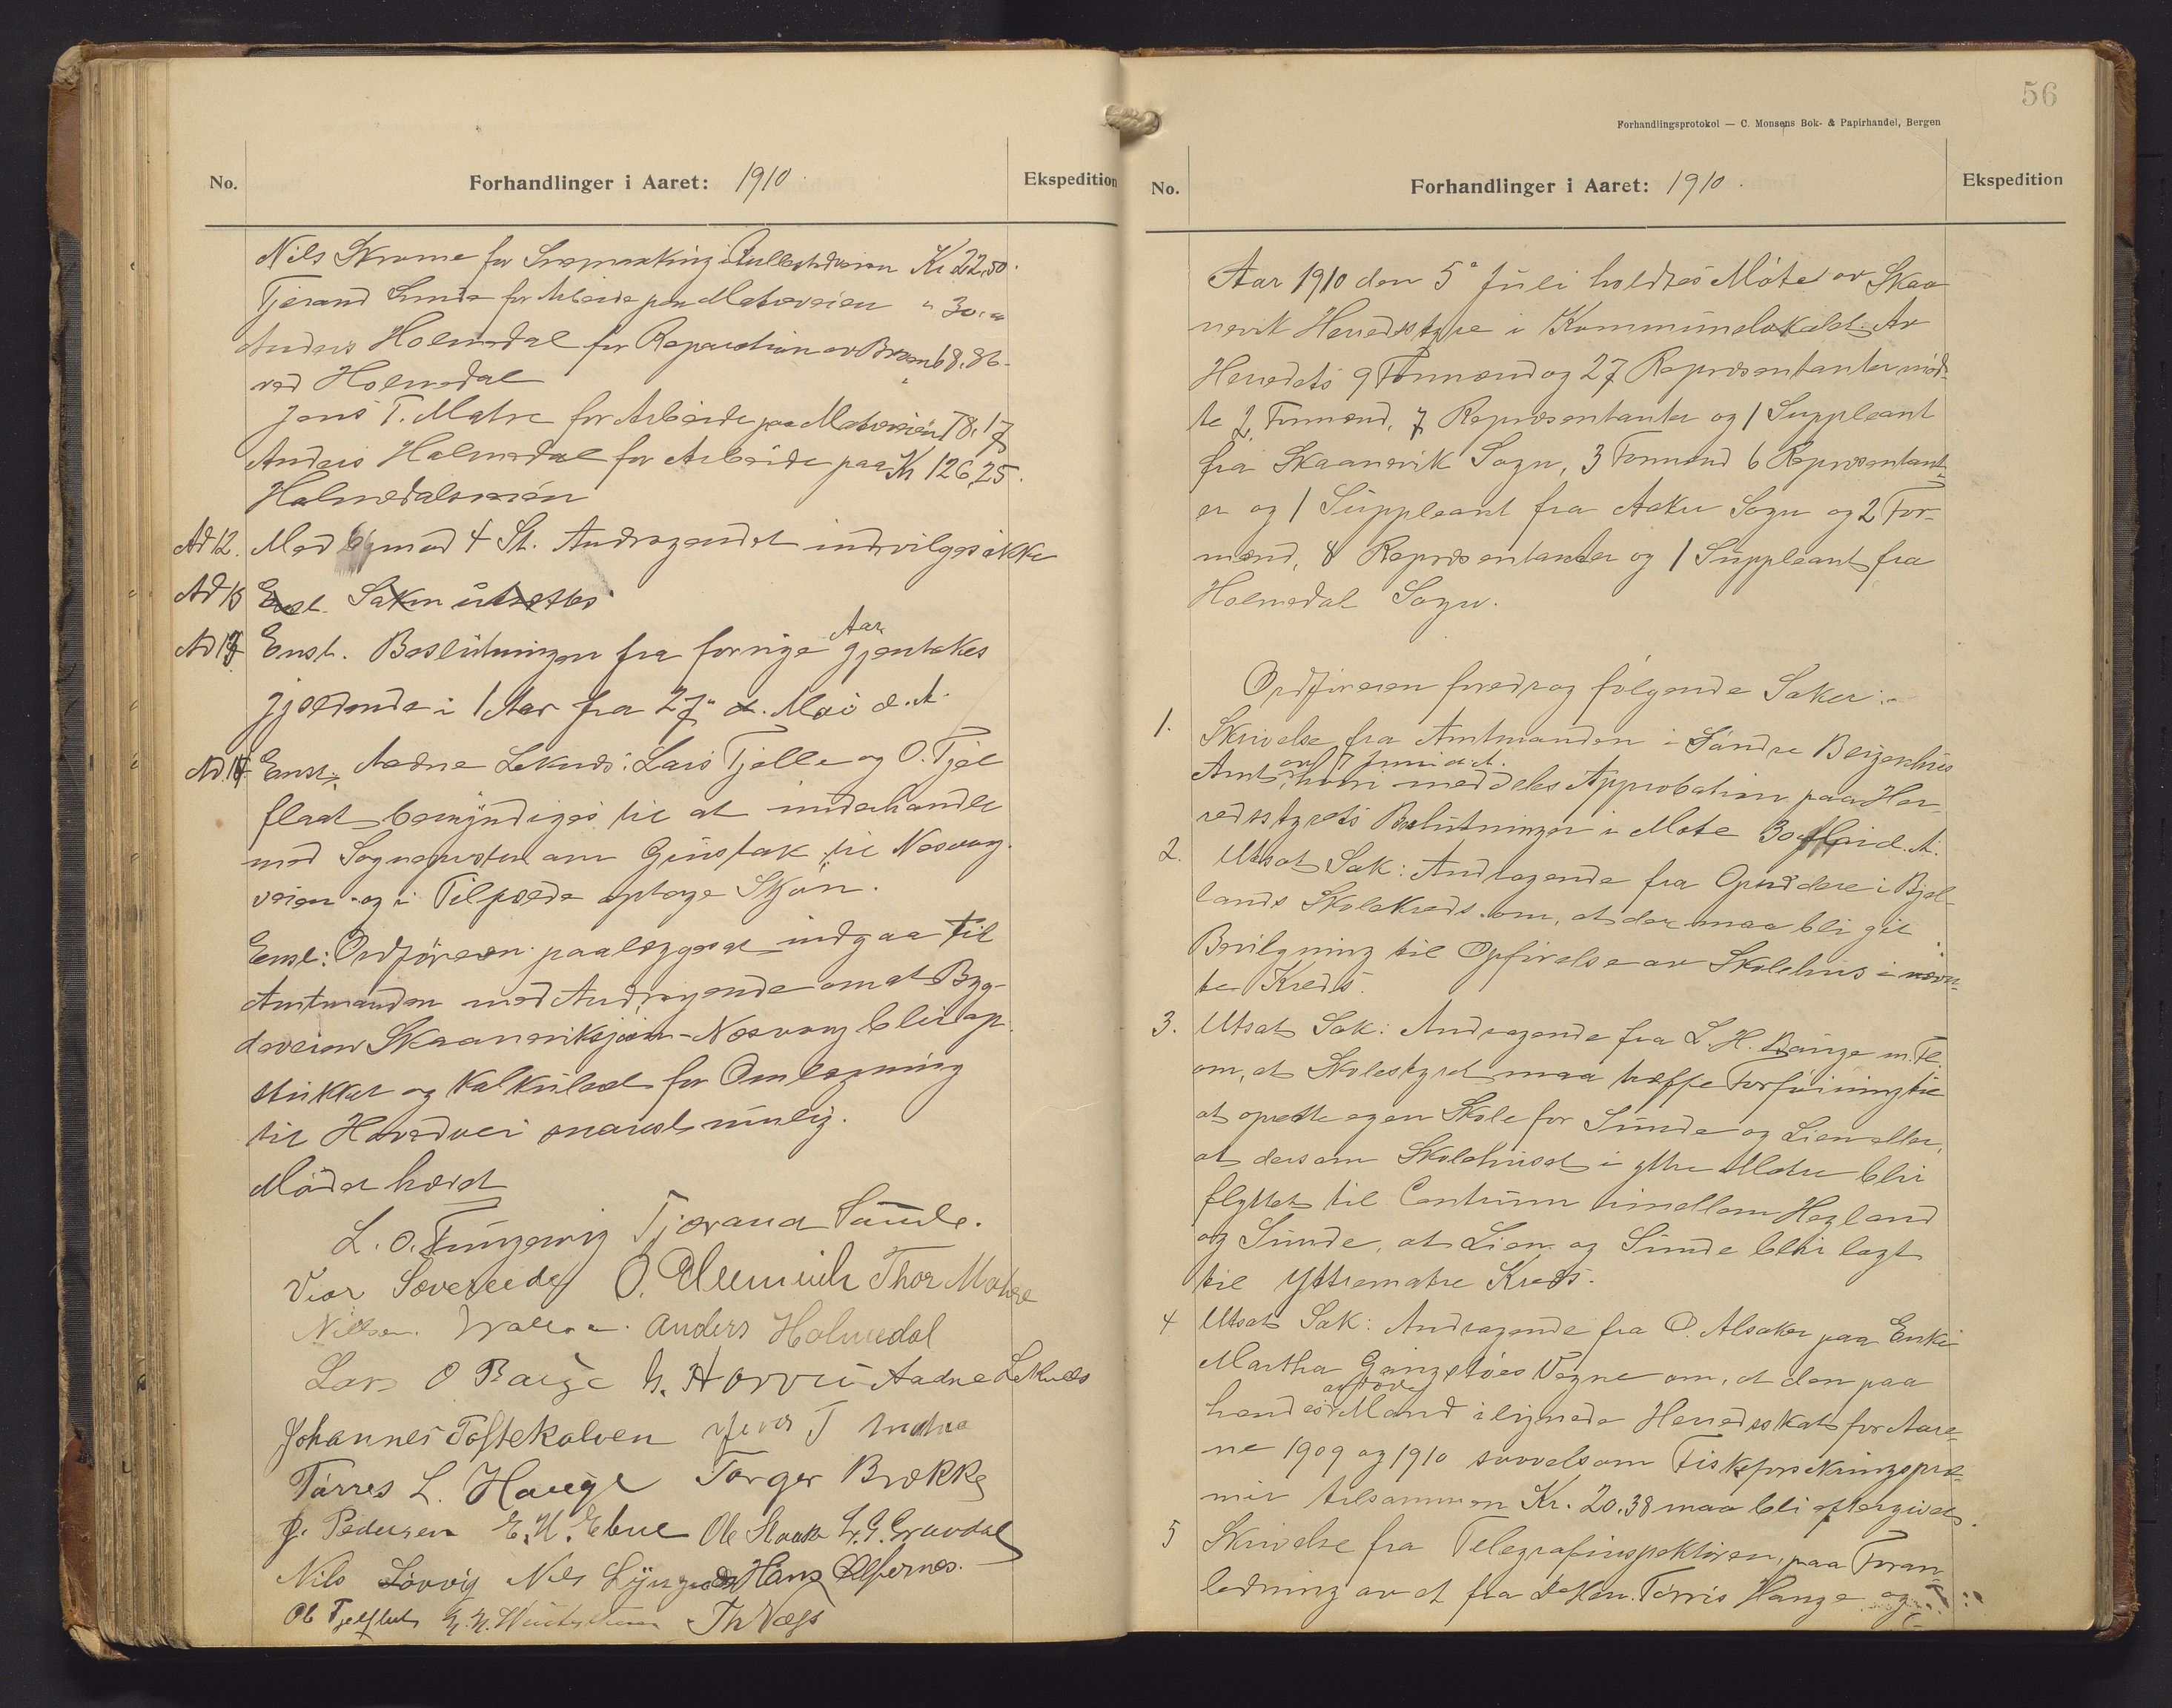 No.
Forhandlinger i Aaret: 1910.
Ekspedition
Nils Skrome for Snemaaking i Kr 22,50.
Tjerand Sunde for Arbeide paa Matreveien " 30.
Anders Holmedal for Reparation av Broen 68.86
ved Holmedal
Jens T. Matre for Arbeide paa Matreveien 78,17
Anders Holmedal for Arbeide paa Kr 126,25.
Holmedalsveien
Ad 12. Med mod 4 St. Andragendet indvilges ikke
Ad 13 Enst. Saken utsættes
Ad 13 Enst. Beslutningen fra forrige Aar gjentakes
gjældende i 1 Aar fra 27de Mai d. A.
Ad. 14 Enst: Aadne Leknes: Lars Tjelle og O. Tjel
flaat bemyndiges til at underhandle
med Sogneprsten om Grustak til Nesvag-
veien og i Tilfælde optage Skjøn.
Enst: Ordføreren paalegges at indgaa til
Amtmanden med Andragende om at Byg-
deveien Skaaneviksjøen-Nesvaag blir op-
stukket og kalkulert for Omlægning
til Hovedvei snarest mulig.
Mødet hævet
L. O. Tungesvig Tjerand Sunde.
Vier Sævereide O. Thor Matre
Nielsen. Anders Holmedal
Lars O Bauge H. Aadne Leknes
Johannes Toftekalven Jens T Matre
Tørres L. Hauge Torger Brekke
J. Pedersen E. H. Ebne Ole L. G. Gruvdal
Nils Løvvig Nils Hans Alfsnes.
Ol Tjelflaat Th Næss
56
Forhandlingsprotokol — C. Monsens Bok- & Papirhandel, Bergen
No.
Forhandlinger i Aaret: 1910.
Ekspedition
Aar 1910 den 5te Juli holdtes Møte av Skaa
nevik Herredsstyre i Kommunelokalet. Av
Herredets 9 Formænd og 27 Repræsentanter mød-
te 2 Formænd, 7 Repræsentanter og 1 Suppleant
fra Skaanevik Sogn, 3 Formænd 6 Repræsentant-
er og 1 Suppleant fra Aakre Sogn og 2 For-
mænd, 8 Repræsentanter og 1 Suppleant fra
Holmedal Sogn.
Ordføreren foredrog følgende Saker:
1. Skrivelse fra Amtmanden i Søndre Bergenhus
Amt av 7 Juni d. A. hvori meddeles Approbation paa Her-
redsstyrets Beslutninger i Møte 30 April d. A.
2. Utsat Sak: Andragende fra Opsiddere i Bjel-
lands Skolekreds om, at der maa bli git
Bevilgning til Opførelse av Skolehus i nævn-
te Kreds.
3. Utsat Sak: Andragende fra L. H. Bauge m. Fl.
om, at Skolestyret maa træffe Forføining til
at oprette egen Skole for Sunde og Lien eller,
at dersom Skolehuset i ytre Matre blir
flyttet til Centrum imellem Hegland
og Sunde, at Lien og Sunde blir lagt
til Yttrematre Kreds.
4 Utsat Sak: Andragende fra O. Alsaker paa Enke
Martha Gangstøes Vegne om, at den paa
hendes avdøde Mand ilignede Herredsskat for Aare-
ne 1909 og 1910 saavelsom Fiskforsikringspræ-
mie tilsammen Kr. 20.38 maa bli eftergivet.
5 Skrivelse fra Telegrafinspektøren, paa Foran-
ledning av et fra D'Hrr. Tørris Hauge og